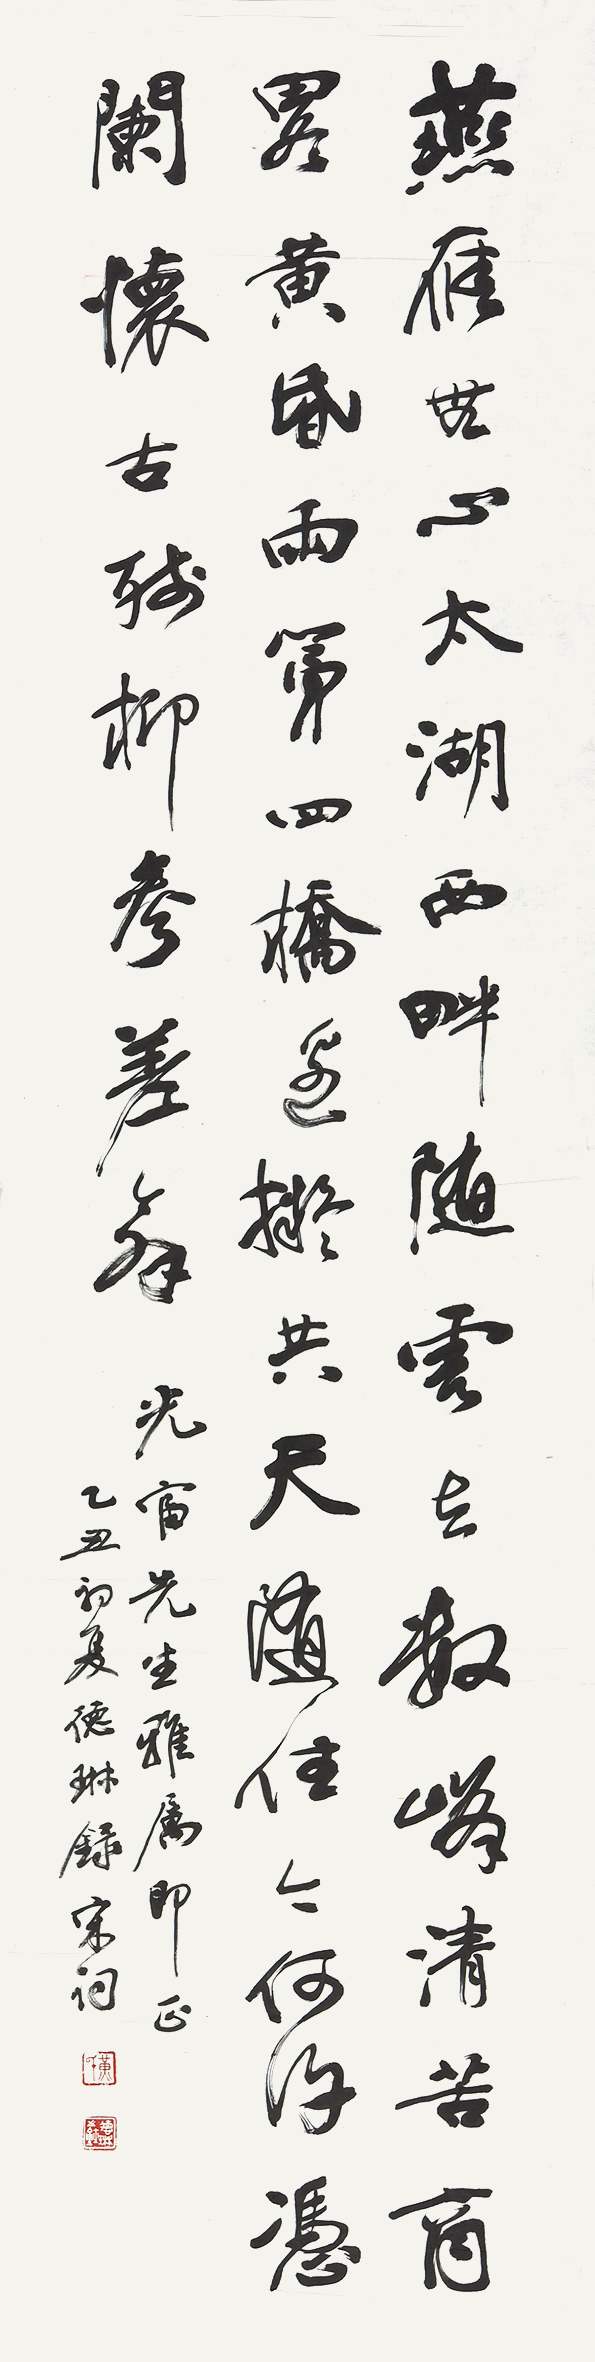 燕雁無心太湖西畔随雲去數峰清苦商
畧黄昏雨第四橋邊擬共天隨住今何許憑
闌懷古殘柳參差舞
光先生雅屬即正
乙丑初夏德琳録宋詞